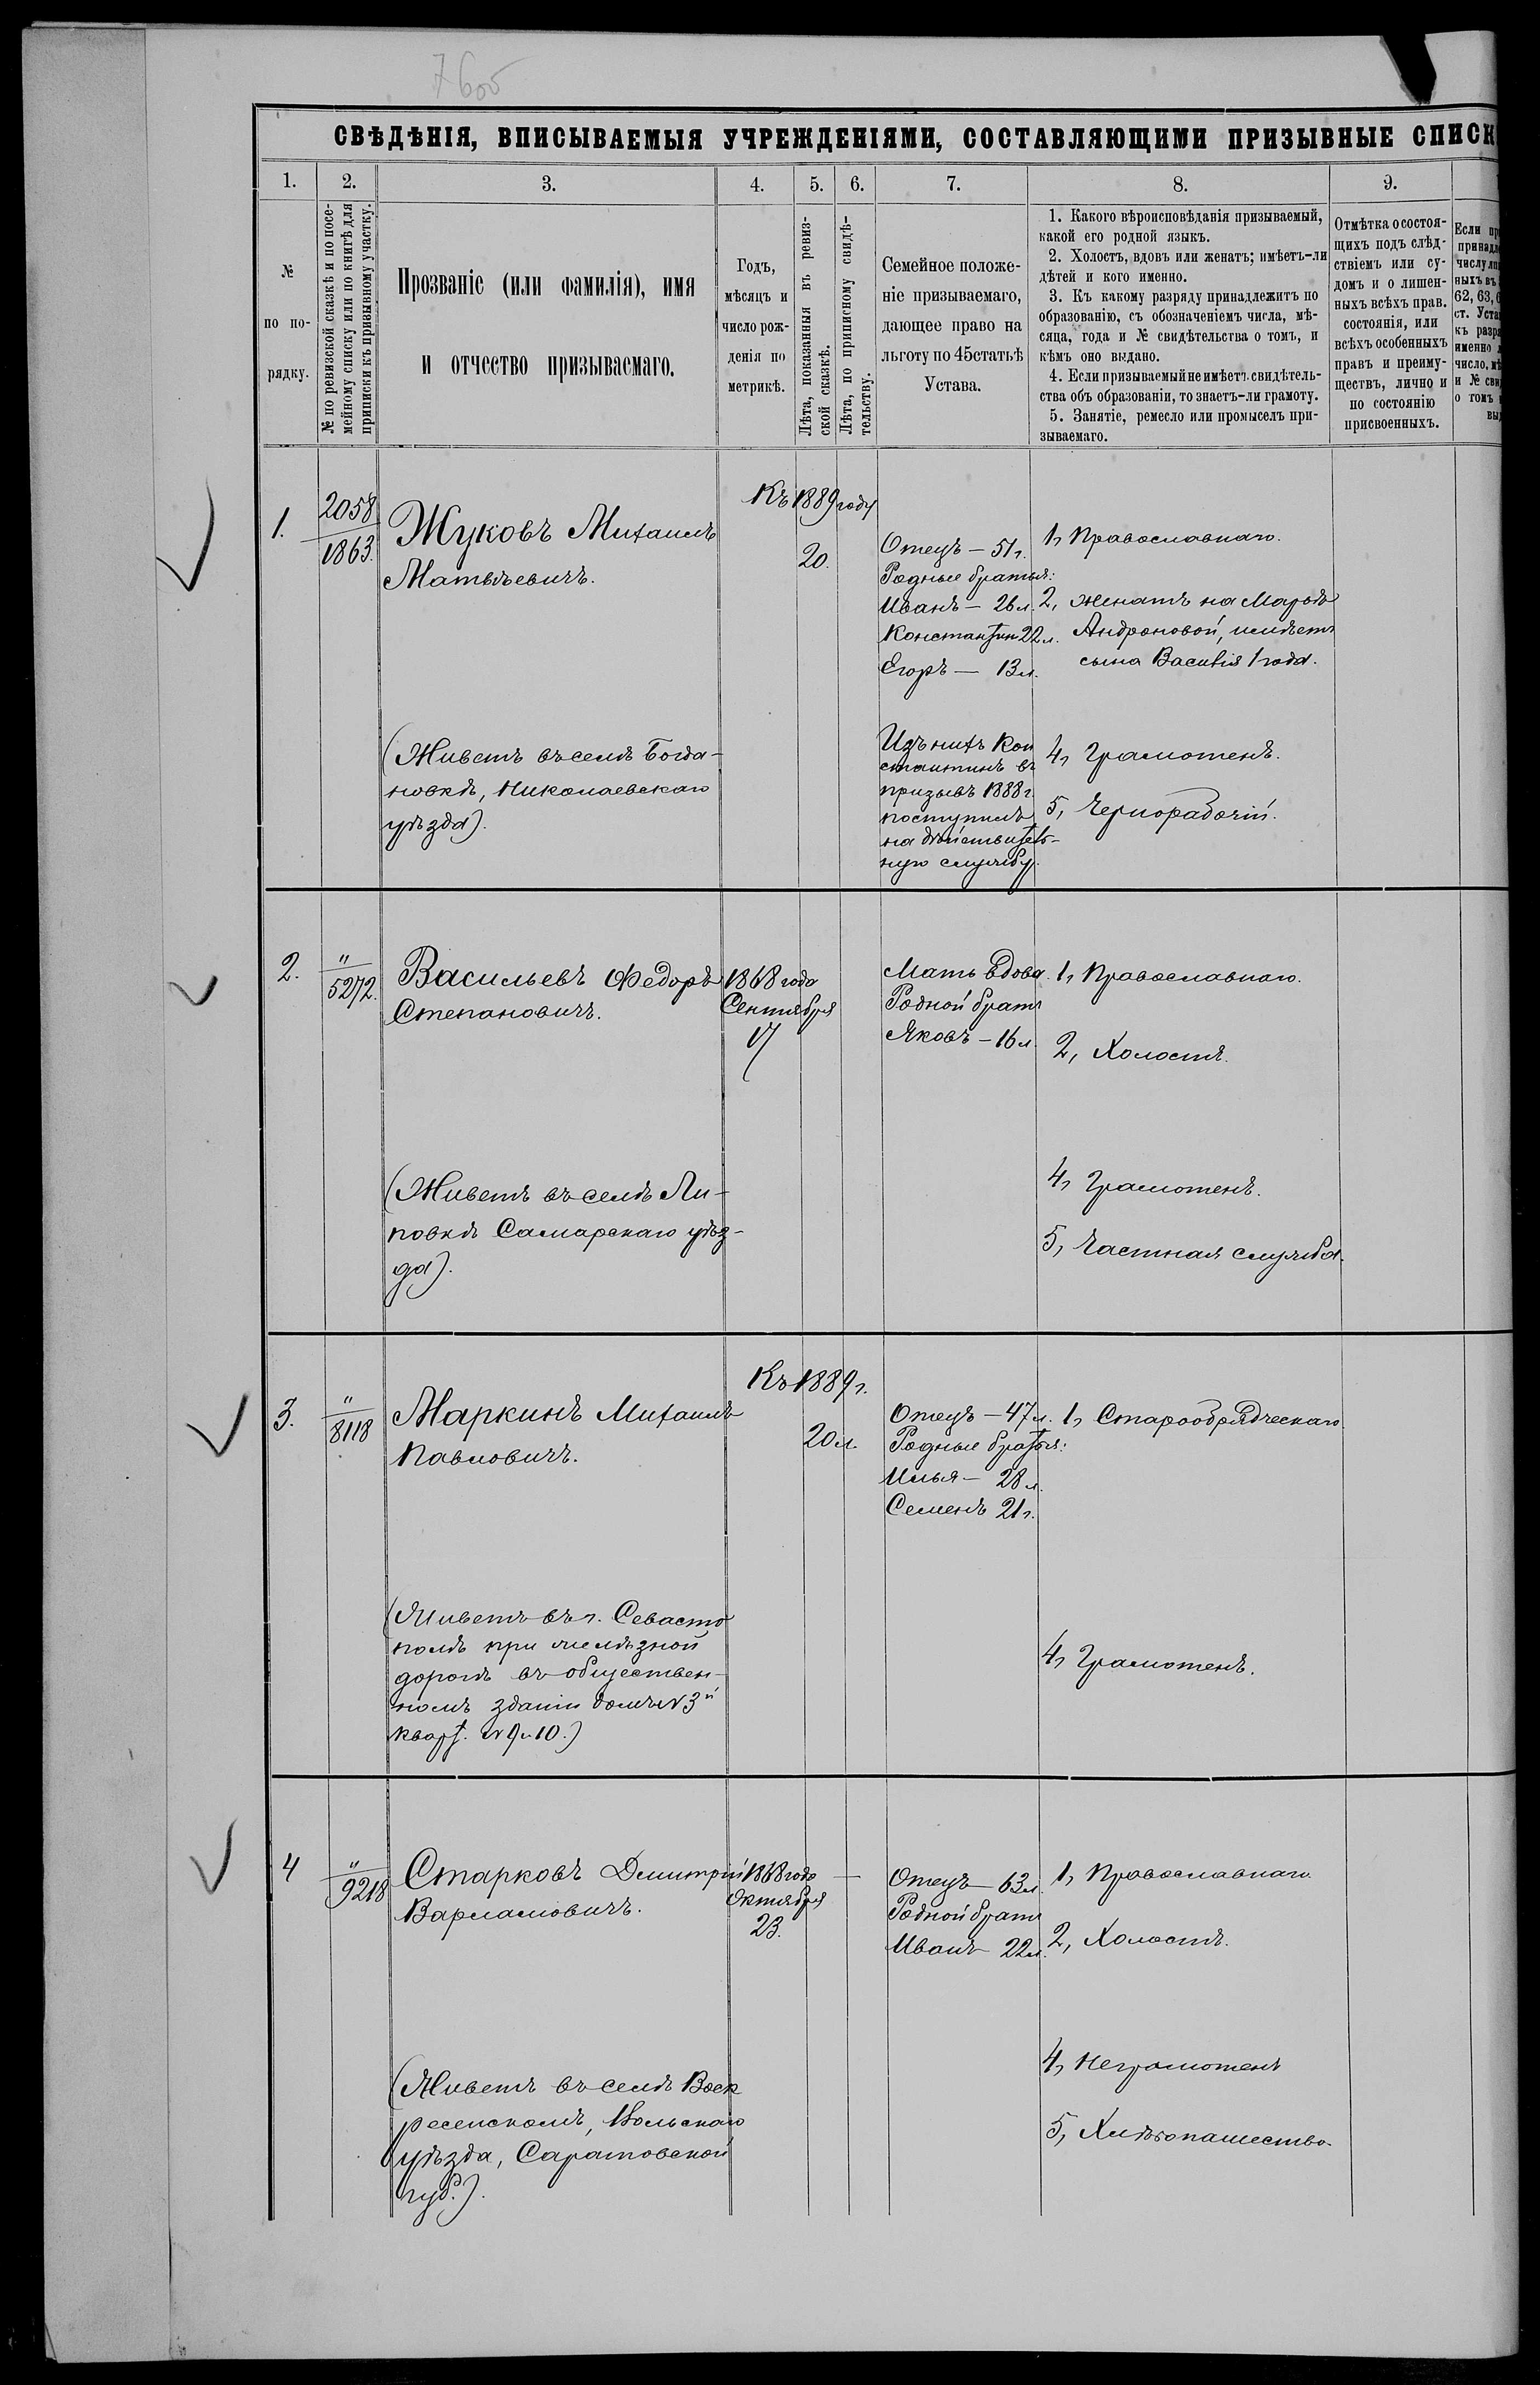 7605
СВѢДѢНІЯ, ВПИСЫВАЕМЫЯ УЧРЕЖДЕНІЯМИ, СОСТАВЛЯЮЩИМИ ПРИЗЫВНЫЕ СПИСК
1.
2.
3.
4.
5.
6.
7.
8.
9.
№
по по-
рядку.
№ по ревизской сказкѣ и по посе-
мейному списку или по книгѣ для
приписки къ призывному участку.
Прозваніе (или фамилія), имя
и отчество призываемаго.
Годъ,
мѣсяцъ и
число рож-
денія по
метрикѣ.
Лѣта, показанныя въ ревиз-
ской сказкѣ.
Лѣта, по приписному свидѣ-
тельству.
Семейное положе-
ніе призываемаго,
дающее право на
льготу по 45 статьѣ
Устава.
1. Какого вѣроисповѣданія призываемый,
какой его родной языкъ.
2. Холостъ, вдовъ или женатъ; имѣетъ-ли
дѣтей и кого именно.
3. Къ какому разряду принадлежитъ по
образованію, съ обозначеніемъ числа, мѣ-
сяца, года и № свидѣтельства о томъ, и
кѣмъ оно выдано.
4. Если призываемый не имѣетъ свидѣтель-
ства объ образованіи, то знаетъ-ли грамоту.
5. Занятіе, ремесло или промыселъ при-
зываемаго.
Отмѣтка о состоя-
щихъ подъ слѣд-
ствіемъ или су-
домъ и о лишен-
ныхъ всѣхъ прав.
состоянія, или
всѣхъ особенныхъ
правъ и преиму-
ществъ, лично и
по состоянію
присвоенныхъ.
Если пр
принадл
числу ли
ныхъ въ
62, 63, 6
ст. Уста
къ разря
именно
число, мѣ
и № сви
о томъ
вы
1.
2058
1863.
Жуковъ Михаилъ
Матвѣевичъ.
(Живетъ въ селѣ Богда-
новкѣ, Николаевскаго
уѣзда).
Къ 1889 году
20.
Отецъ — 51 г.
Родные братья:
Иванъ — 26 л.
Константин 22 л.
Егоръ — 13 л.
Изъ нихъ Кон
стантинъ въ
призывъ 1888 г.
поступилъ
на дѣйствитель-
ную службу.
1, Православнаго.
2, женатъ на Марьѣ
Андроновой, имѣетъ
сына Василія 1 года.
4, Грамотенъ.
5, Чернорабочій.
2.
"
5272.
Васильевъ Федоръ
Степановичъ.
(Живетъ въ селѣ Ли-
повкѣ Самарскаго уѣз-
да).
1868 года
Сентября
17
Мать вдова.
Родной братъ
Яковъ — 16 л.
1, Православнаго.
2, Холостъ.
4, Грамотенъ.
5, Частная служба.
3.
"
8118
Маркинъ Михаилъ
Павловичъ.
(Живетъ въ г. Севасто
полѣ при желѣзной
дорогѣ въ обществен-
номъ зданіи домъ № 3й
кварт. № 9 и 10.)
Къ 1889 г.
20 л.
Отецъ — 47 л.
Родные братья:
Илья — 28 л.
Семенъ 21 г.
1, Старообрядческаго
4, Грамотенъ.
4
"
9218
Старковъ Дмитрій
Варламовичъ.
(Живетъ въ селѣ Воск
ресенскомъ, Вольскаго
уѣзда, Саратовской
губ.).
1868 года
Октября
23.
—
Отецъ — 63 л.
Родной братъ
Иванъ — 22 л.
1, Православнаго
2, Холостъ.
4, Неграмотенъ
5, Хлѣбопашество.